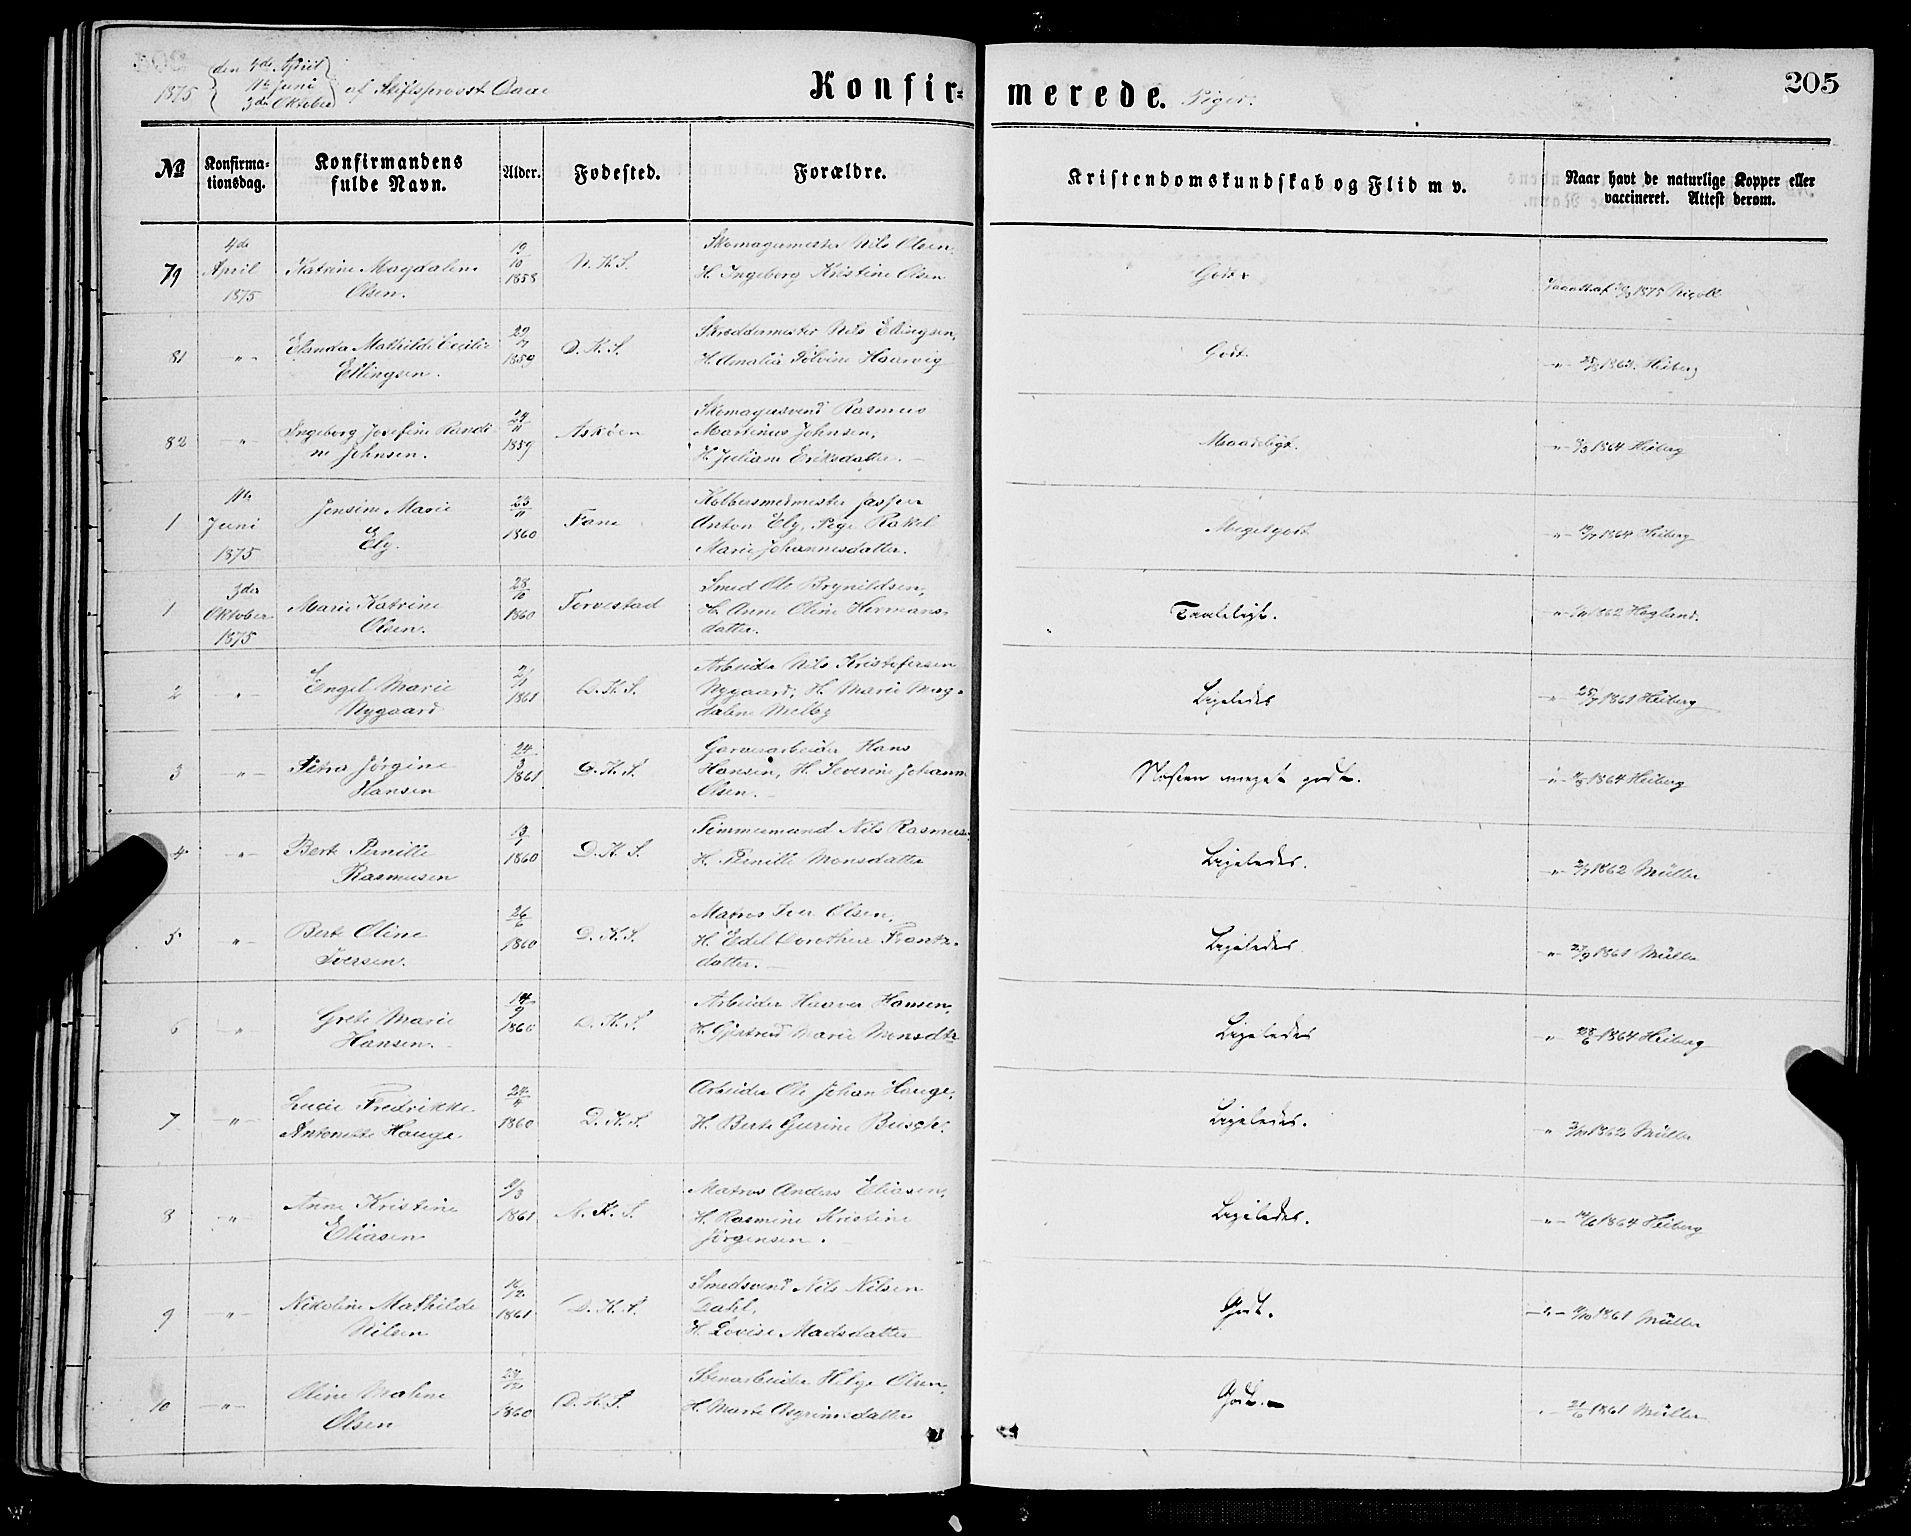 205
1875 den 4de April
11te Juni
3die Oktober af Stiftsprovst
Konfir-
merede. Piger.
No
Konfirma-
tionsdag.
Konfirmandens
fulde Navn.
Alder.
Fødested.
Forældre.
Kristendomskundskab og Flid m v.
Naar havt de naturlige Kopper eller
vaccineret. Attest derom.
79
4de
April
1875
Katrine Magdalene
Olsen.
19/10
1858
N. K. S.
Skomagermester Nils Olsen,
H. Ingeborg Kristine Olsen
Godt
1875 Nicoll
81
-"-
Elanda Mathilde Cecilie
Ellingsen.
29/7
1859
D. K. S.
Skreddermester Nils Ellingsen,
H. Amalia Haarvig
Godt.
-"- 1862 Heiberg
82
-"-
Ingeborg Josefine Randi-
ne Johnsen.
24/11
1859
Askøen
Skomagersvend Rasmus
Martinus Johnsen,
H. Juliane Eriksdatter.
Maadeligt.
-"- 1864 Heiberg
1
11te
Juni
1875
Jensine Marie
Ely.
23/11
1860
Fane
Kobbersmedmester Jasper
Anton Ely, Pige Rakel
Marie Johannesdatter.
Megetgodt
-"- 1864 Heiberg
1
3die
Oktober
1875
Marie Katrine
Olsen.
28/10
1860
Torvestad
Smed Ole Brynildsen,
H. Anne Oline Hermans-
datter.
Taaleligt.
-"- 1862 Hogland.
2
-"-
Engel Marie
Nygaard
2/1
1861
D. K. S.
Arbeider Nils Kristofersen
Nygaard, H. Marie Mag-
dalene Melby
Ligeledes
-"- 25/7 1861 Heiberg
3
-"-
Petra Jörgine
Hansen
24/3
1861
D. K. S.
Garverarbeider Hans
Hansen, H. Severine Johanne
Olsen.
Næsten meget godt.
-"- 1864 Heiberg
4
-"-
Berte Pernille
Rasmusen
13/1
1860
D. K. S.
Timmermand Nils Rasmus.
H. Pernille Monsdatter
Ligeledes.
-"- 1862 Müller
5
-"-
Berte Oline
Iversen.
26/6
1860
D. K. S.
Matros Iver Olsen,
H. Edel Dorothea Frantz-
datter.
Ligeledes
-"- 27/9 1861 Müller
6
-"-
Grete Marie
Hansen.
14/9
1860
D. K. S.
Arbeider Haaver Hansen,
H. Gjertrud Marie Monsdtr
Ligeledes
-"- 28/6 1864 Heiberg
7
-"-
Lucie Fredrikke
Antonette Hauge
24/11
1860
D. K. S.
Arbeider Ole Johan Hauge,
H. Berte Gurine Busch.
Ligeledes.
-"- 1862 Müller
8
-"-
Anne Kristine
Eliasen
1861
N. K. S.
Matros Anders Eliasen,
H. Rasmine Kristine
Jörgensen.
Ligeledes.
-"- 14/6 1864 Heiberg
9
-"-
Nikoline Mathilde
Nilsen
16/2
1861
D. K. S.
Smedsvend Nils Nilsen
Dahl,
H. Lovise Madsdatter
Godt.
-"- 1861 Müller
10
-"-
Oline Malene
Olsen
1860
D. K. S.
Stenarbeider Helge Olsen,
H. Marte Asgrimsdatter
Godt.
-"- 21/6 1861 Müller